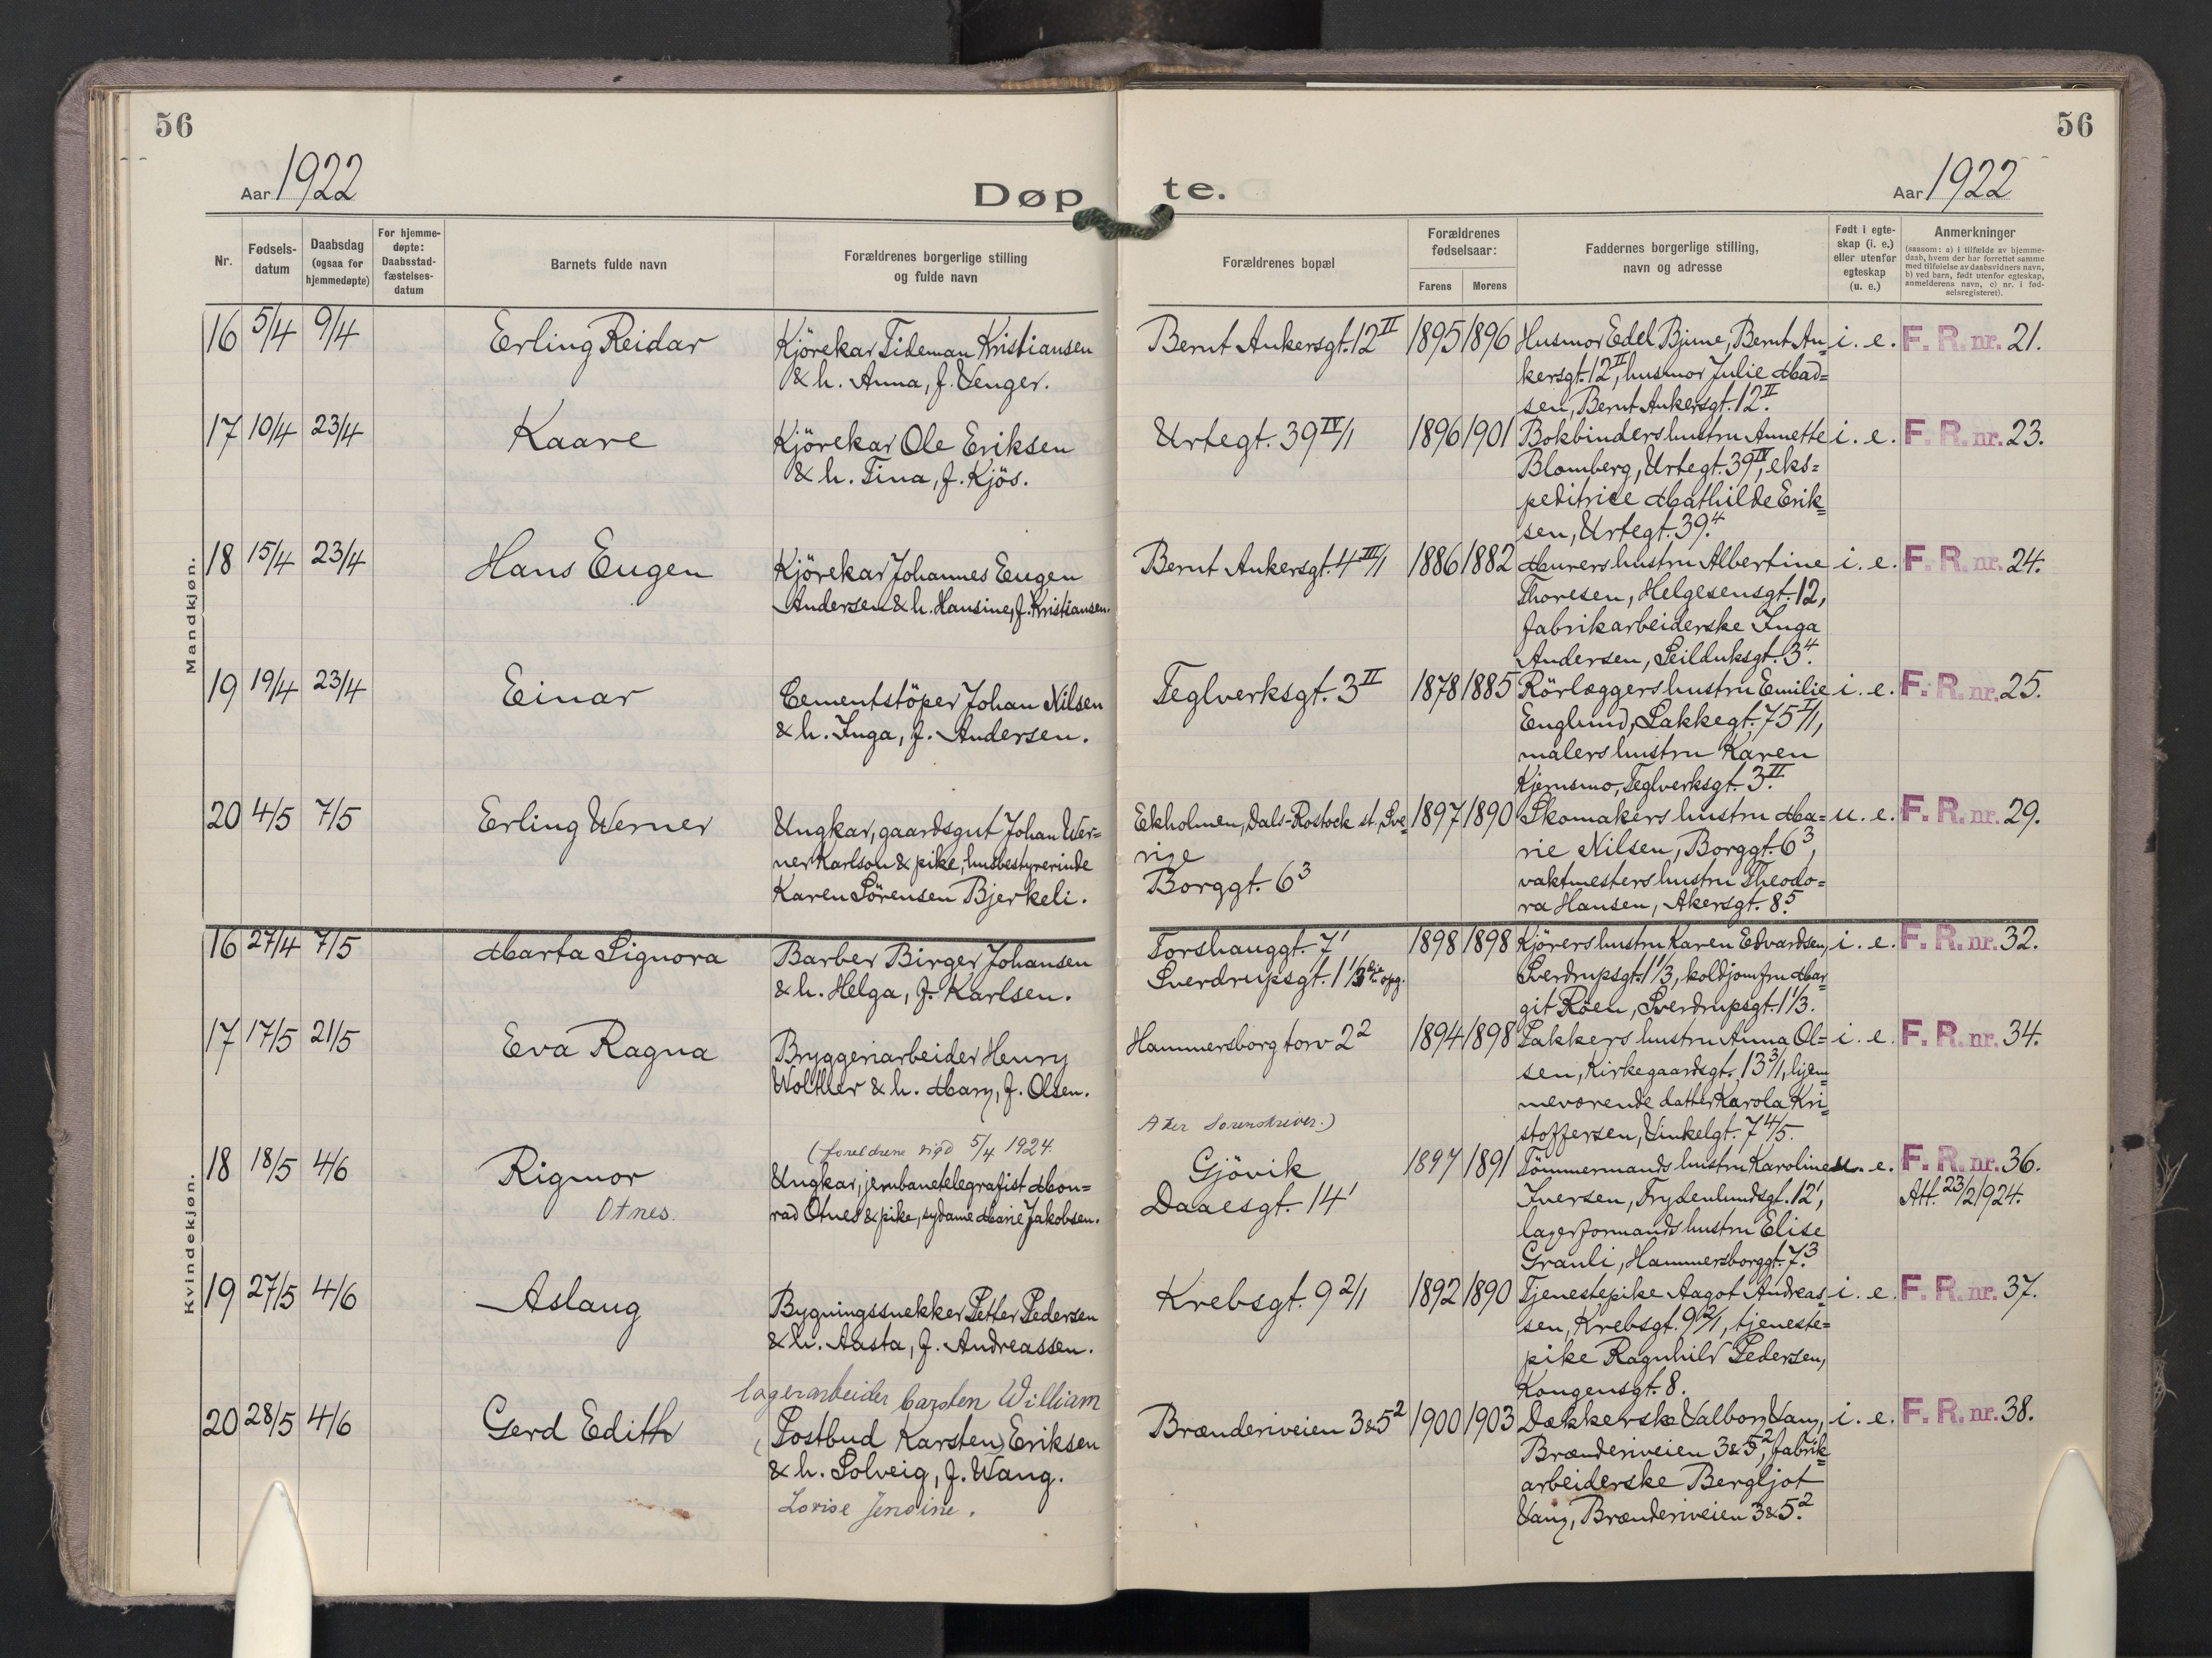 56
Aar 1922
Døp
Nr.
Fødsels-
datum
Daabsdag
(ogsaa for
hjemmedøpte)
For hjemme-
døpte:
Daabsstad-
fæstelses-
datum
Barnets fulde navn
Forældrenes borgerlige stilling
og fulde navn
Mandkjøn.
16 5/4 9/4 Erling Reidar Kjörekar Tideman Kristiansen
& h. Anna, f. Venger.
17 10/4 23/4 Kaare Kjörekar Ole Eriksen
& h. Tina, f. Kjös.
18 15/4 23/4 Hans Eugen Kjörekar Johannes Eugen
Andersen & h. Hansine, f. Kristiansen.
19 19/4 23/4 Einar Cementstöper Johan Nilsen
& h. Inga, f. Andersen.
20 4/5 7/5 Erling Werner Ungkar, gaardsgut Johan Wer=
ner Karlson & pike, husbestyrerinde
Karen Sörensen Bjerkeli.
Kvindekjøn.
16 27/4 7/5 Marta Signora Barber Birger Johansen
& h. Helga, f. Karlsen.
17 17/5 21/5 Eva Ragna Bryggeriarbeider Henry
Wolther & h. Mary, f. Olsen.
(foreldrene vigd 5/4 1924.
18 18/5 4/6 Rigmor Ungkar, jernbanetelegrafist Mon=
Otnes. rad Otnes & pike, sydame Marie Jakobsen.
19 27/5 4/6 Aslaug Bygningssnekker Petter Pedersen
& h. Aasta, f. Andreassen.
lagerarbeider Carsten William
20 28/5 4/6 Gerd Edith (Postbud Karsten) Eriksen
& h. Solveig, f. Wang.
Lovise Jensine.
te.
56
Aar 1922
Forældrenes bopæl
Forældrenes
fødselsaar:
Farens
Morens
Faddernes borgerlige stilling,
navn og adresse
Født i egte-
skap (i. e.)
eller utenfor
egteskap
(u. e.)
Anmerkninger
(saasom: a) i tilfælde av hjemme-
daab, hvem der har forrettet samme
med tilføielse av daabsvidners navn,
b) ved barn, født utenfor egteskap,
anmelderens navn, c) nr. i fød-
selsregisteret).
Bernt Ankersgt. 12 II 1895 1896 Husmor Edel Bjune, Bernt An= i. e. F. R. nr. 21.
kersgt. 12 II, husmor Julie Mad=
sen, Bernt Ankersgt. 12 II.
Urtegt. 39 IV/1 1896 1901 Bokbinders hustru Annette i. e. F. R. nr. 23.
Blomberg, Urtegt. 39 IV, eks=
peditrice Mathilde Erik=
sen, Urtegt. 39 4.
Bernt Ankersgt. 4 III/1 1886 1882 Murers hustru Albertine i. e. F. R. nr. 24.
Thoresen, Helgesensgt. 12,
fabrikarbeiderske Inga
Andersen, Seilduksgt. 3 4.
Teglverksgt. 3 II 1878 1885 Rörlæggers hustru Emilie i. e. F. R. nr. 25.
Englund, Lakkegt. 75 I/1,
malers hustru Karen
Kjernsmo, Teglverksgt. 3 II.
Ekholmen, Dals-Rostock st. Sve= 1897 1890 Skomakers hustru Ma= u. e. F. R. nr. 29.
rige rie Nilsen, Borggt. 6 3,
Borggt. 6 3 vaktmesters hustru Theodo=
ra Hansen, Akersgt. 8 5.
Torshauggt. 7 1 1898 1898 Kjörers hustru Karen Edvardsen, i. e. F. R. nr. 32.
Sverdrupsgt. 1 1/3 dje opg. Sverdrupsgt. 1 1/3, koldjomfru Mar=
git Röen, Sverdrupsgt. 1 1/3.
Hammersborg torv 2 2 1894 1898 Pakkers hustru Anna Ol= i. e. F. R. nr. 34.
sen, Kirkegaardsgt. 13 3/1, hjem=
meværende datter Karola Kri=
stoffersen, Vinkelgt. 7 4/5.
Aker Sorenskriver.)
Gjövik 1897 1891 Tömmermands hustru Karoline u. e. F. R. nr. 36.
Daaesgt. 14 1 Iversen, Frydenlundsgt. 12 1, Att. 23/2 1924.
lagerformands hustru Elise
Granli, Hammersborggt. 7 3.
Krebsgt. 9 2/1 1892 1890 Tjenestepike Aagot Andreas= i. e. F. R. nr. 37.
sen, Krebsgt. 9 2/1, tjeneste=
pike Ragnhild Pedersen,
Kongensgt. 8.
Brænderiveien 3 & 5 2 1900 1903 Dækkerske Valborg Vang, i. e. F. R. nr. 38.
Brænderiveien 3 & 5 2, fabrik=
arbeiderske Bergljot
Vang, Brænderiveien 3 & 5 2.